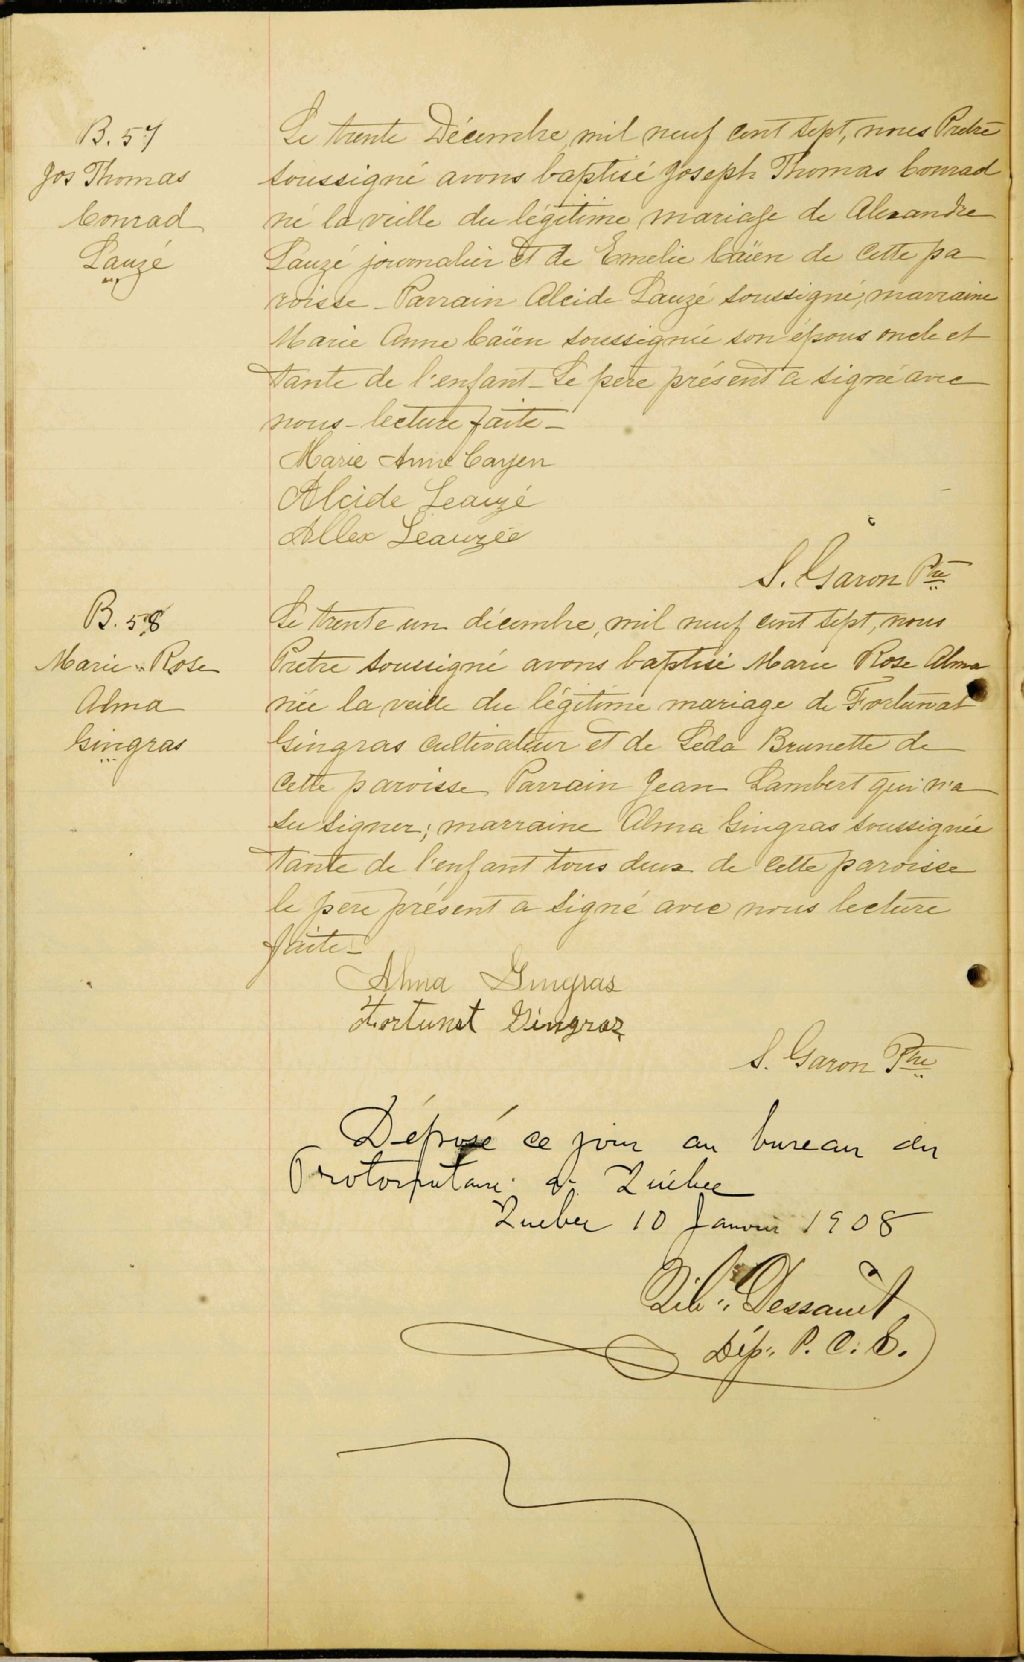 B. 57
Jos Thomas
Conrad
Lauzé
Le trente Décembre mil neuf cent sept, nous Prêtre
soussigné avons baptisé Joseph Thomas Conrad
né la veille du légitime mariage de Alexandre
Lauzé journalier et de Emelie Caïen de cette pa
roisse - Parrain Alcide Lauzé soussigné, marraine
Marie Anne Caïen soussignée son épous oncle et
tante de l'enfant - Le père présent a signé avec
nous - lecture faite -
Marie Anne Cayen
Alcide Leauzé
Allex Leauzée
S. Garon Ptre
B. 58
Marie Rose
Alma
Gingras
Le trente un décembre, mil neuf cent sept, nous
Prêtre soussigné avons baptisé Marie Rose Alma
née la veille du légitime mariage de Fortunat
Gingras cultivateur et de Léda Brunette de
cette paroisse Parrain Jean Lambert qui n'a
su signer; marraine Alma Gingras soussignée
tante de l'enfant tous deux de cette paroisse
le père présent a signé avec nous lecture
faite -
Alma Gingras
Fortunat Gingraz
S. Garon Ptre
Déposé ce jour au bureau du
Protonotaire à Québec
Québec 10 Janvier 1908
Dessault
Dép. P. C. S.